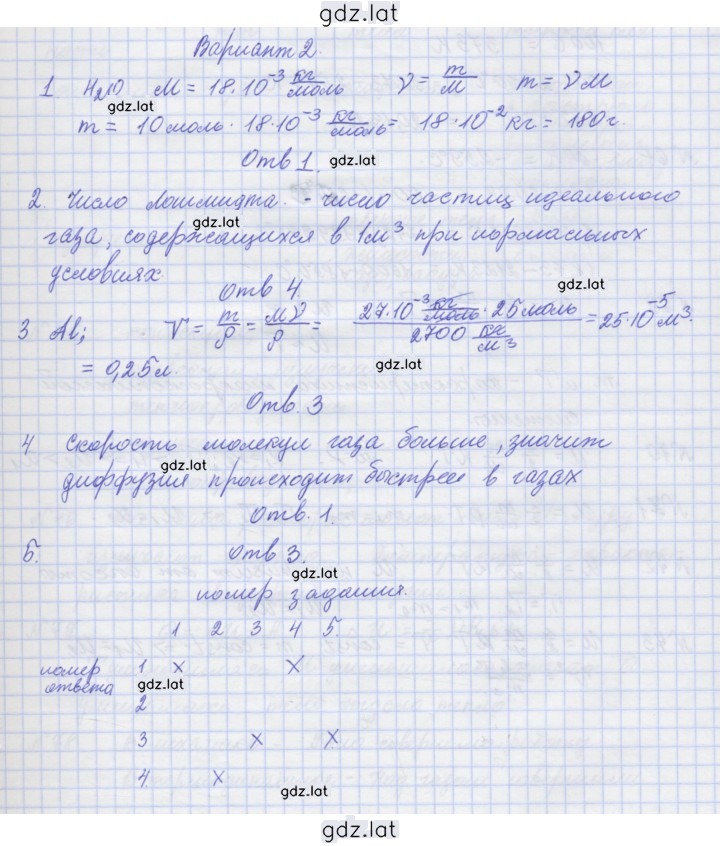 gdz.lat
Вариант 2.
1. H₂O M = 18·10⁻³ кг/моль ν = m/M m = νM
gdz.lat
m = 10 моль · 18·10⁻³ кг/моль = 18·10⁻² кг = 180 г.
Отв 1. gdz.lat
2. Число Лошмидта. - число частиц идеального
gdz.lat
газа, содержащихся в 1м³ при нормальных
условиях gdz.lat
Отв 4
3 Al; V = m/ρ = Mν/ρ = 27·10⁻³ кг/моль · 25 моль / 2700 кг/м³ = 25·10⁻⁵ м³.
= 0,25 л. gdz.lat
Отв. 3
4 Скорость молекул газа больше, значит
gdz.lat
диффузия происходит быстрее в газах
Отв. 1.
5. Отв 3.
gdz.lat
номер задания.
1 2 3 4 5
номер ответа 1 x x
gdz.lat
2
3 x x
4 x
gdz.lat
gdz.lat